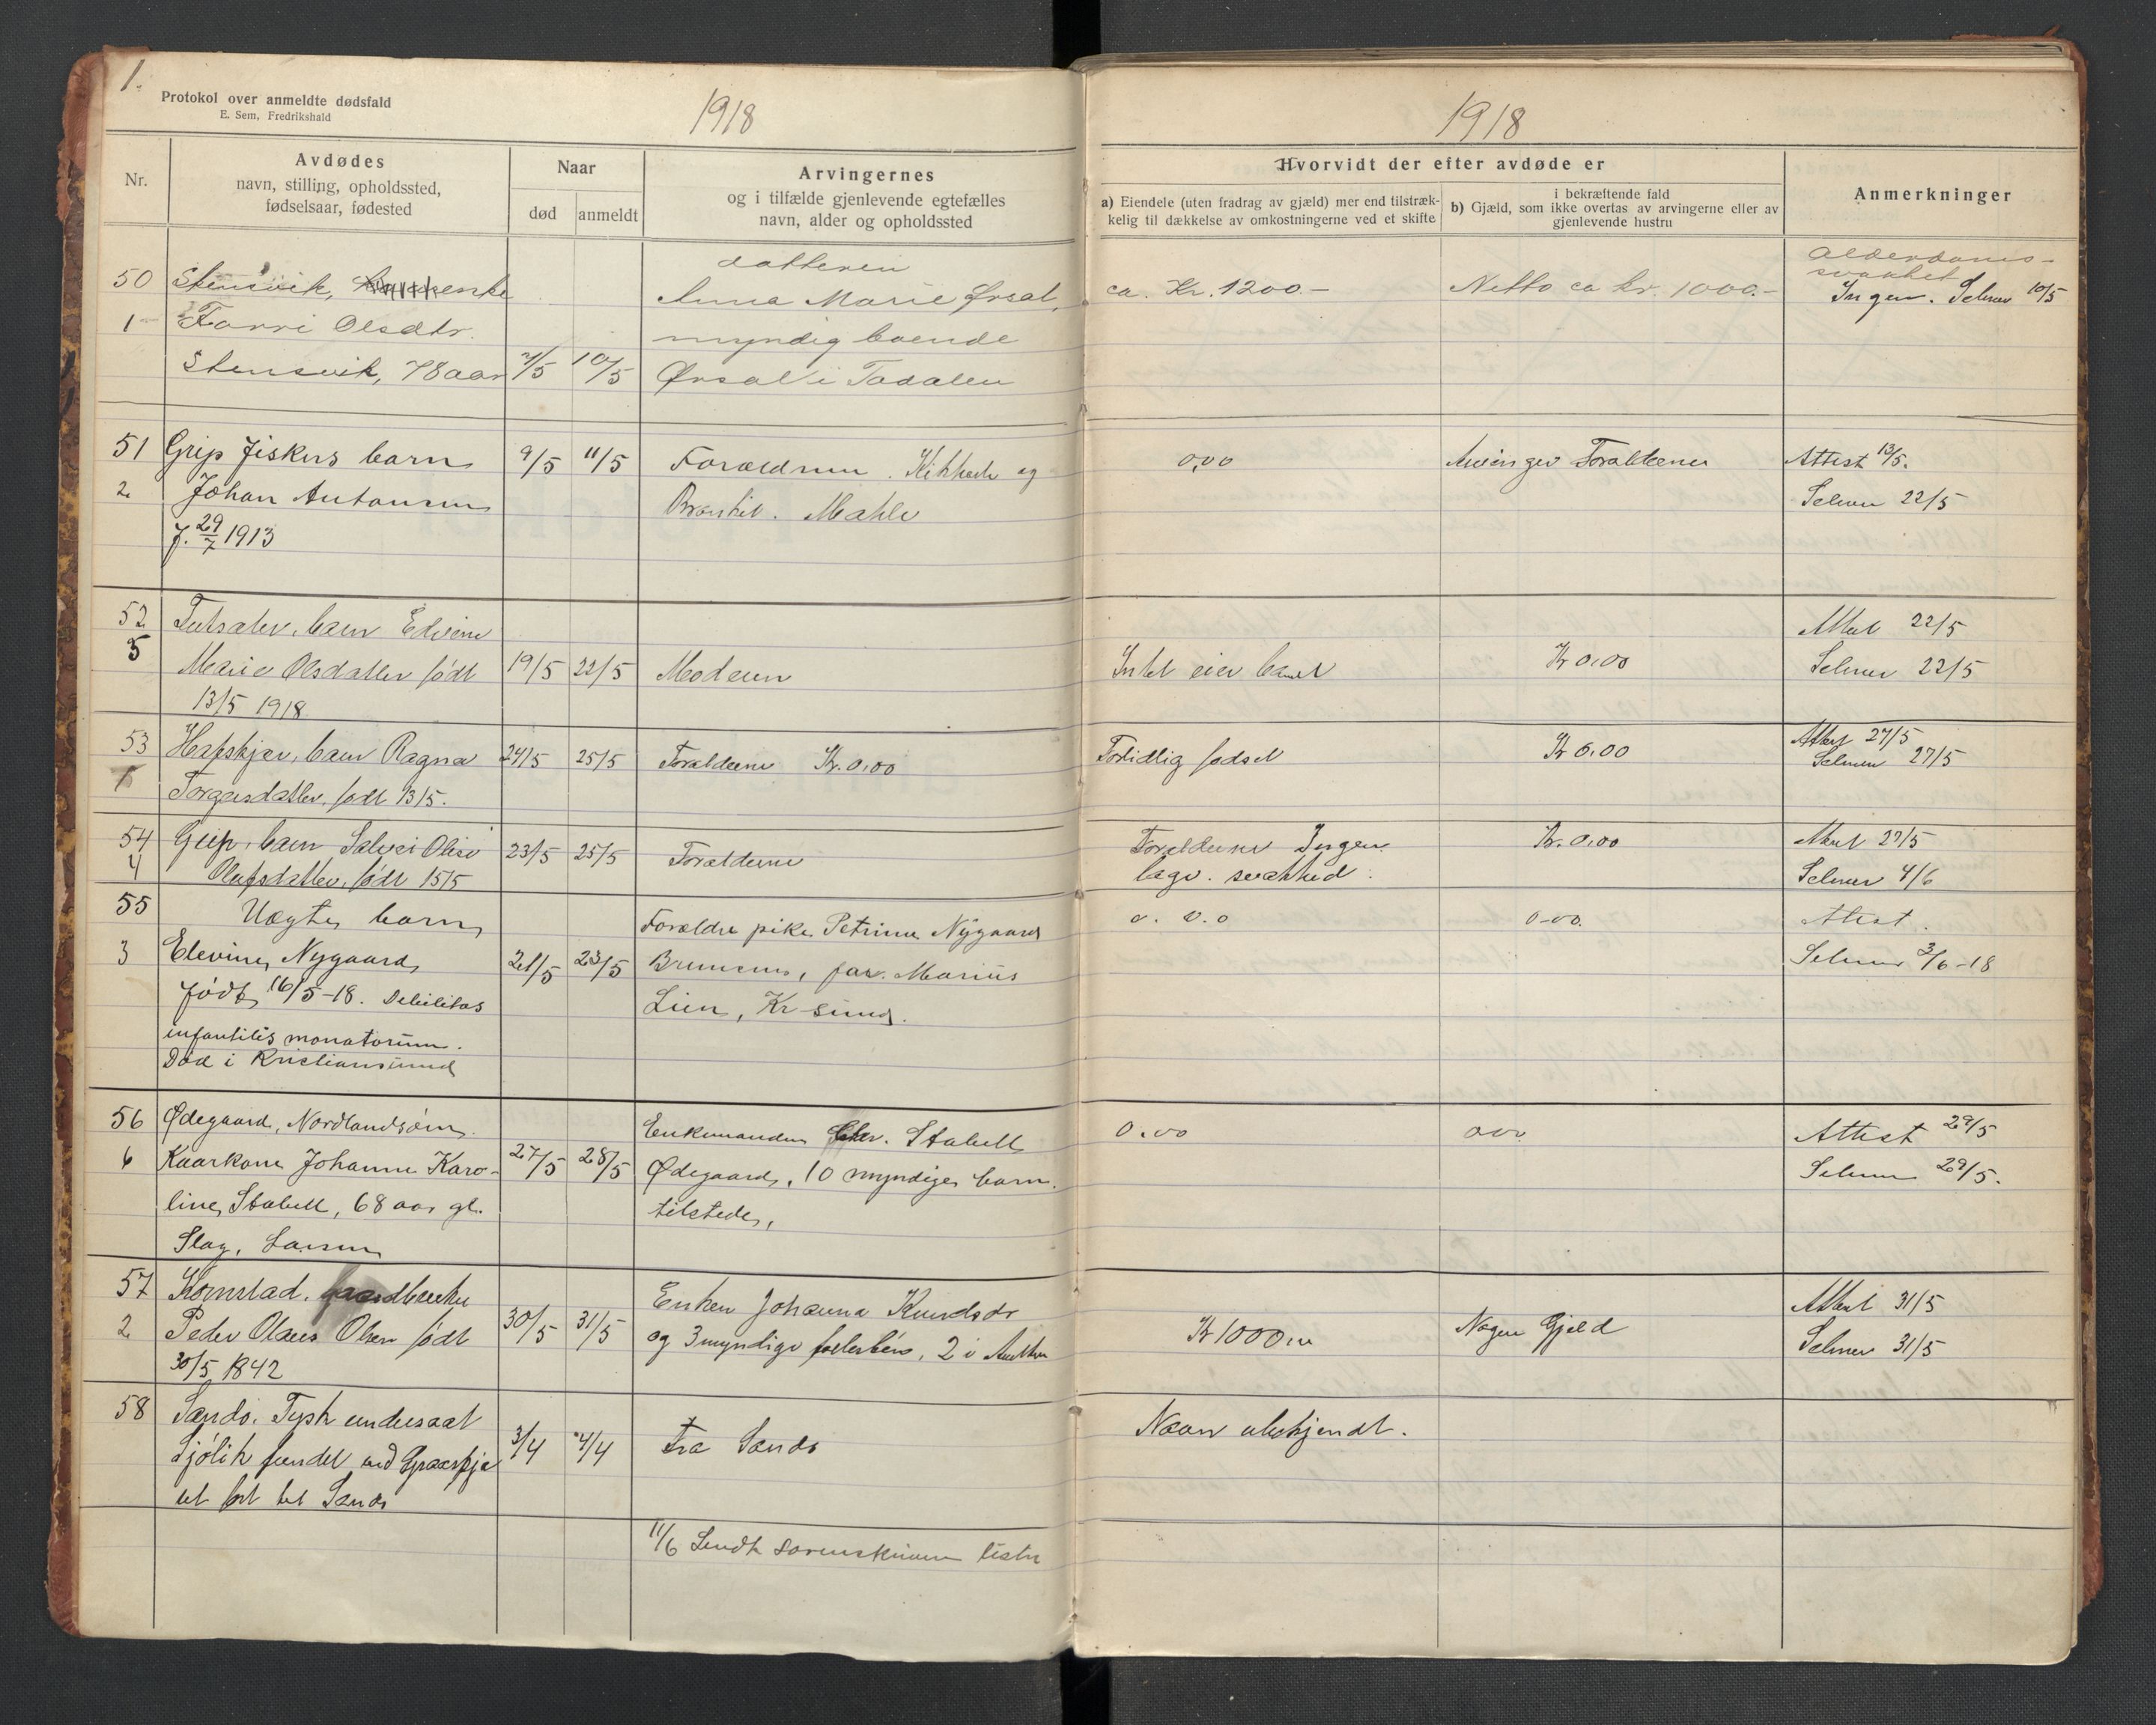 1.
Protokol over anmeldte dødsfald
E. Sem, Fredrikshald
1918
Nr.
Avdødes
navn, stilling, opholdssted,
fødselsaar, fødested
Naar
død
anmeldt
Arvingernes
og i tilfælde gjenlevende egtefælles
navn, alder og opholdssted
1918
Hvorvidt der efter avdøde er
a) Eiendele (uten fradrag av gjæld) mer end tilstræk-
kelig til dækkelse av omkostningerne ved et skifte
i bekræftende fald
b) Gjæld, som ikke overtas av arvingerne eller av
gjenlevende hustru
Anmerkninger
50
1
Stensvik, enke
Olsdtr.
Stensvik, 78 aar
7/5
10/5
datteren
Anna Marie Ørsal,
myndig boende
Ørsal i Todalen
ca. Kr. 1200.-
Netto ca kr. 1000.-
Alderdoms-
svakhet
Ingen. Selmer 10/5
51
2
Grip Fiskers barn
Johan Antonsen
f. 29/7 1913
9/5
11/5
Forældrene. Kikhoste og
Mahle
0,00
Arvinger Forældrene
Attest 13/5.
Selmer 22/5
52
5
barn
Marie Olsdatter født
13/5 1918
19/5
22/5
Moderen
Intet eier barnet
Kr 0.00
Attest 22/5
Selmer 22/5
53
1
Hafskjær, barn Ragna
født 13/5.
24/5
25/5
Forældrene Kr. 0.00
Fortidlig fødsel
Kr 0.00
Attest 27/5
Selmer 27/5
54
4
Grip, barn
Olufsdatter, født 15/5
23/5
25/5
Forældrene
Forældrene Ingen
læge. svakhed.
Kr. 0.00
Attest 27/5
Selmer 4/6
55
3
Uægte barn
Elevine Nygaard
født 16/5-18. Debilitas
infantilis
Død i Kristiansund
21/5
23/5
Forældre pike Petrine Nygaard
far. Marius
Lien, Kr-sund.
0.00
Attest.
Selmer 3/6-18
56
6
Ødegaard, Nordlandsøen.
Kaarkone Johanne Karo-
line Stabell, 68 aar gl.
Slag, Larsen
27/5
28/5
Enkemanden Chr. Stabell
Ødegaard, 10 myndige barn
tilstede,
0.00
000
Attest 29/5
Selmer 29/5.
57
2
Kornstad. Gaardbruker
Peder Olaus Olsen født
30/5 1842
30/5
31/5
Enken Johanna Knudsdr
og 3 myndige 2 i
Kr 1000
Nogen Gjeld
Attest 31/5
Selmer 31/5
58
Sandø. Tysk undersaat
Sjølik fundet ved
3/4
4/4
Fra Sandø
Navn ubekjendt.
11/6 Sendt sorenskriveren liste